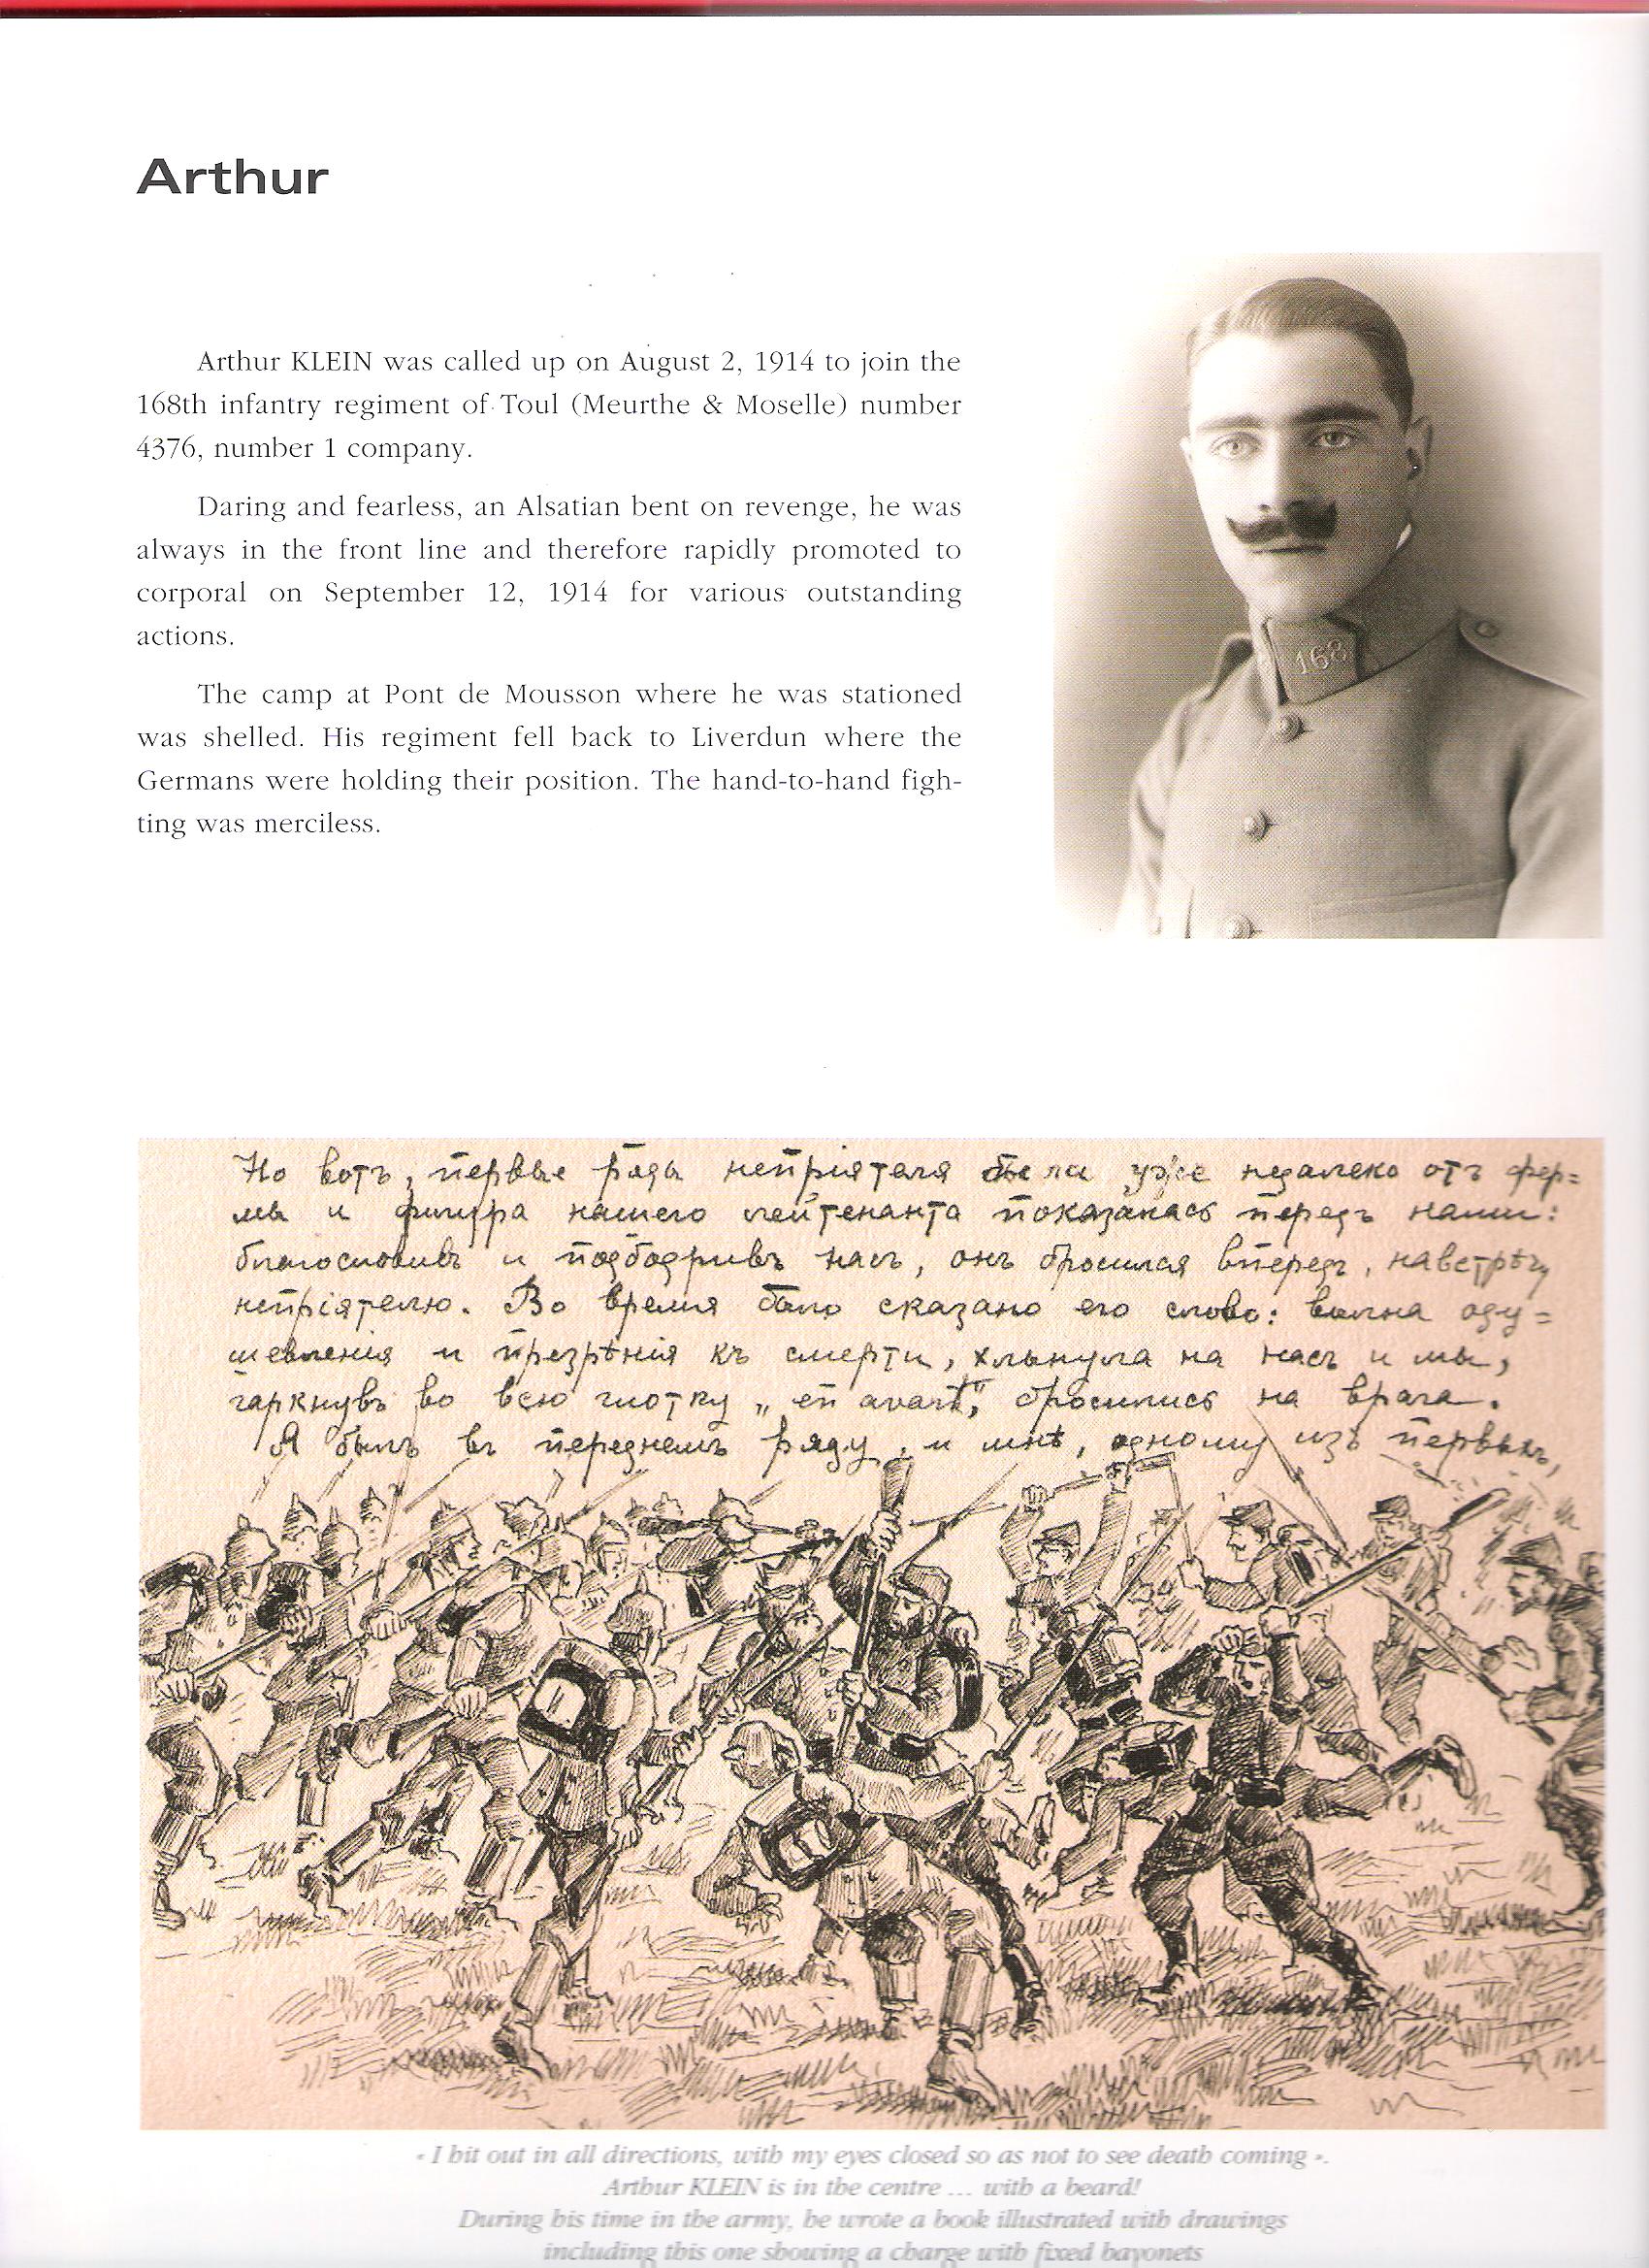 Arthur
Arthur KLEIN was called up on August 2, 1914 to join the
168th infantry regiment of Toul (Meurthe & Moselle) number
4376, number 1 company.
Daring and fearless, an Alsatian bent on revenge, he was
always in the front line and therefore rapidly promoted to
corporal on September 12, 1914 for various outstanding
actions.
The camp at Pont de Mousson where he was stationed
was shelled. His regiment fell back to Liverdun where the
Germans were holding their position. The hand-to-hand figh-
ting was merciless.
168
Но вотъ, первые ряды непріятеля были уже недалеко отъ фер=
мы и фигура нашего лейтенанта показалась передъ нами:
благословивъ и подбодривъ насъ, онъ бросился впередъ, навстрѣчу
непріятелю. Во время было сказано его слово: волна оду=
шевленія и презрѣнія къ смерти, хлынула на насъ и мы,
гаркнувъ во всю глотку „en avant", бросились на врага.
Я былъ въ переднемъ ряду, и мнѣ, одному изъ первыхъ,
« I hit out in all directions, with my eyes closed so as not to see death coming ».
Arthur KLEIN is in the centre ... with a beard!
During his time in the army, he wrote a book illustrated with drawings
including this one showing a charge with fixed bayonets